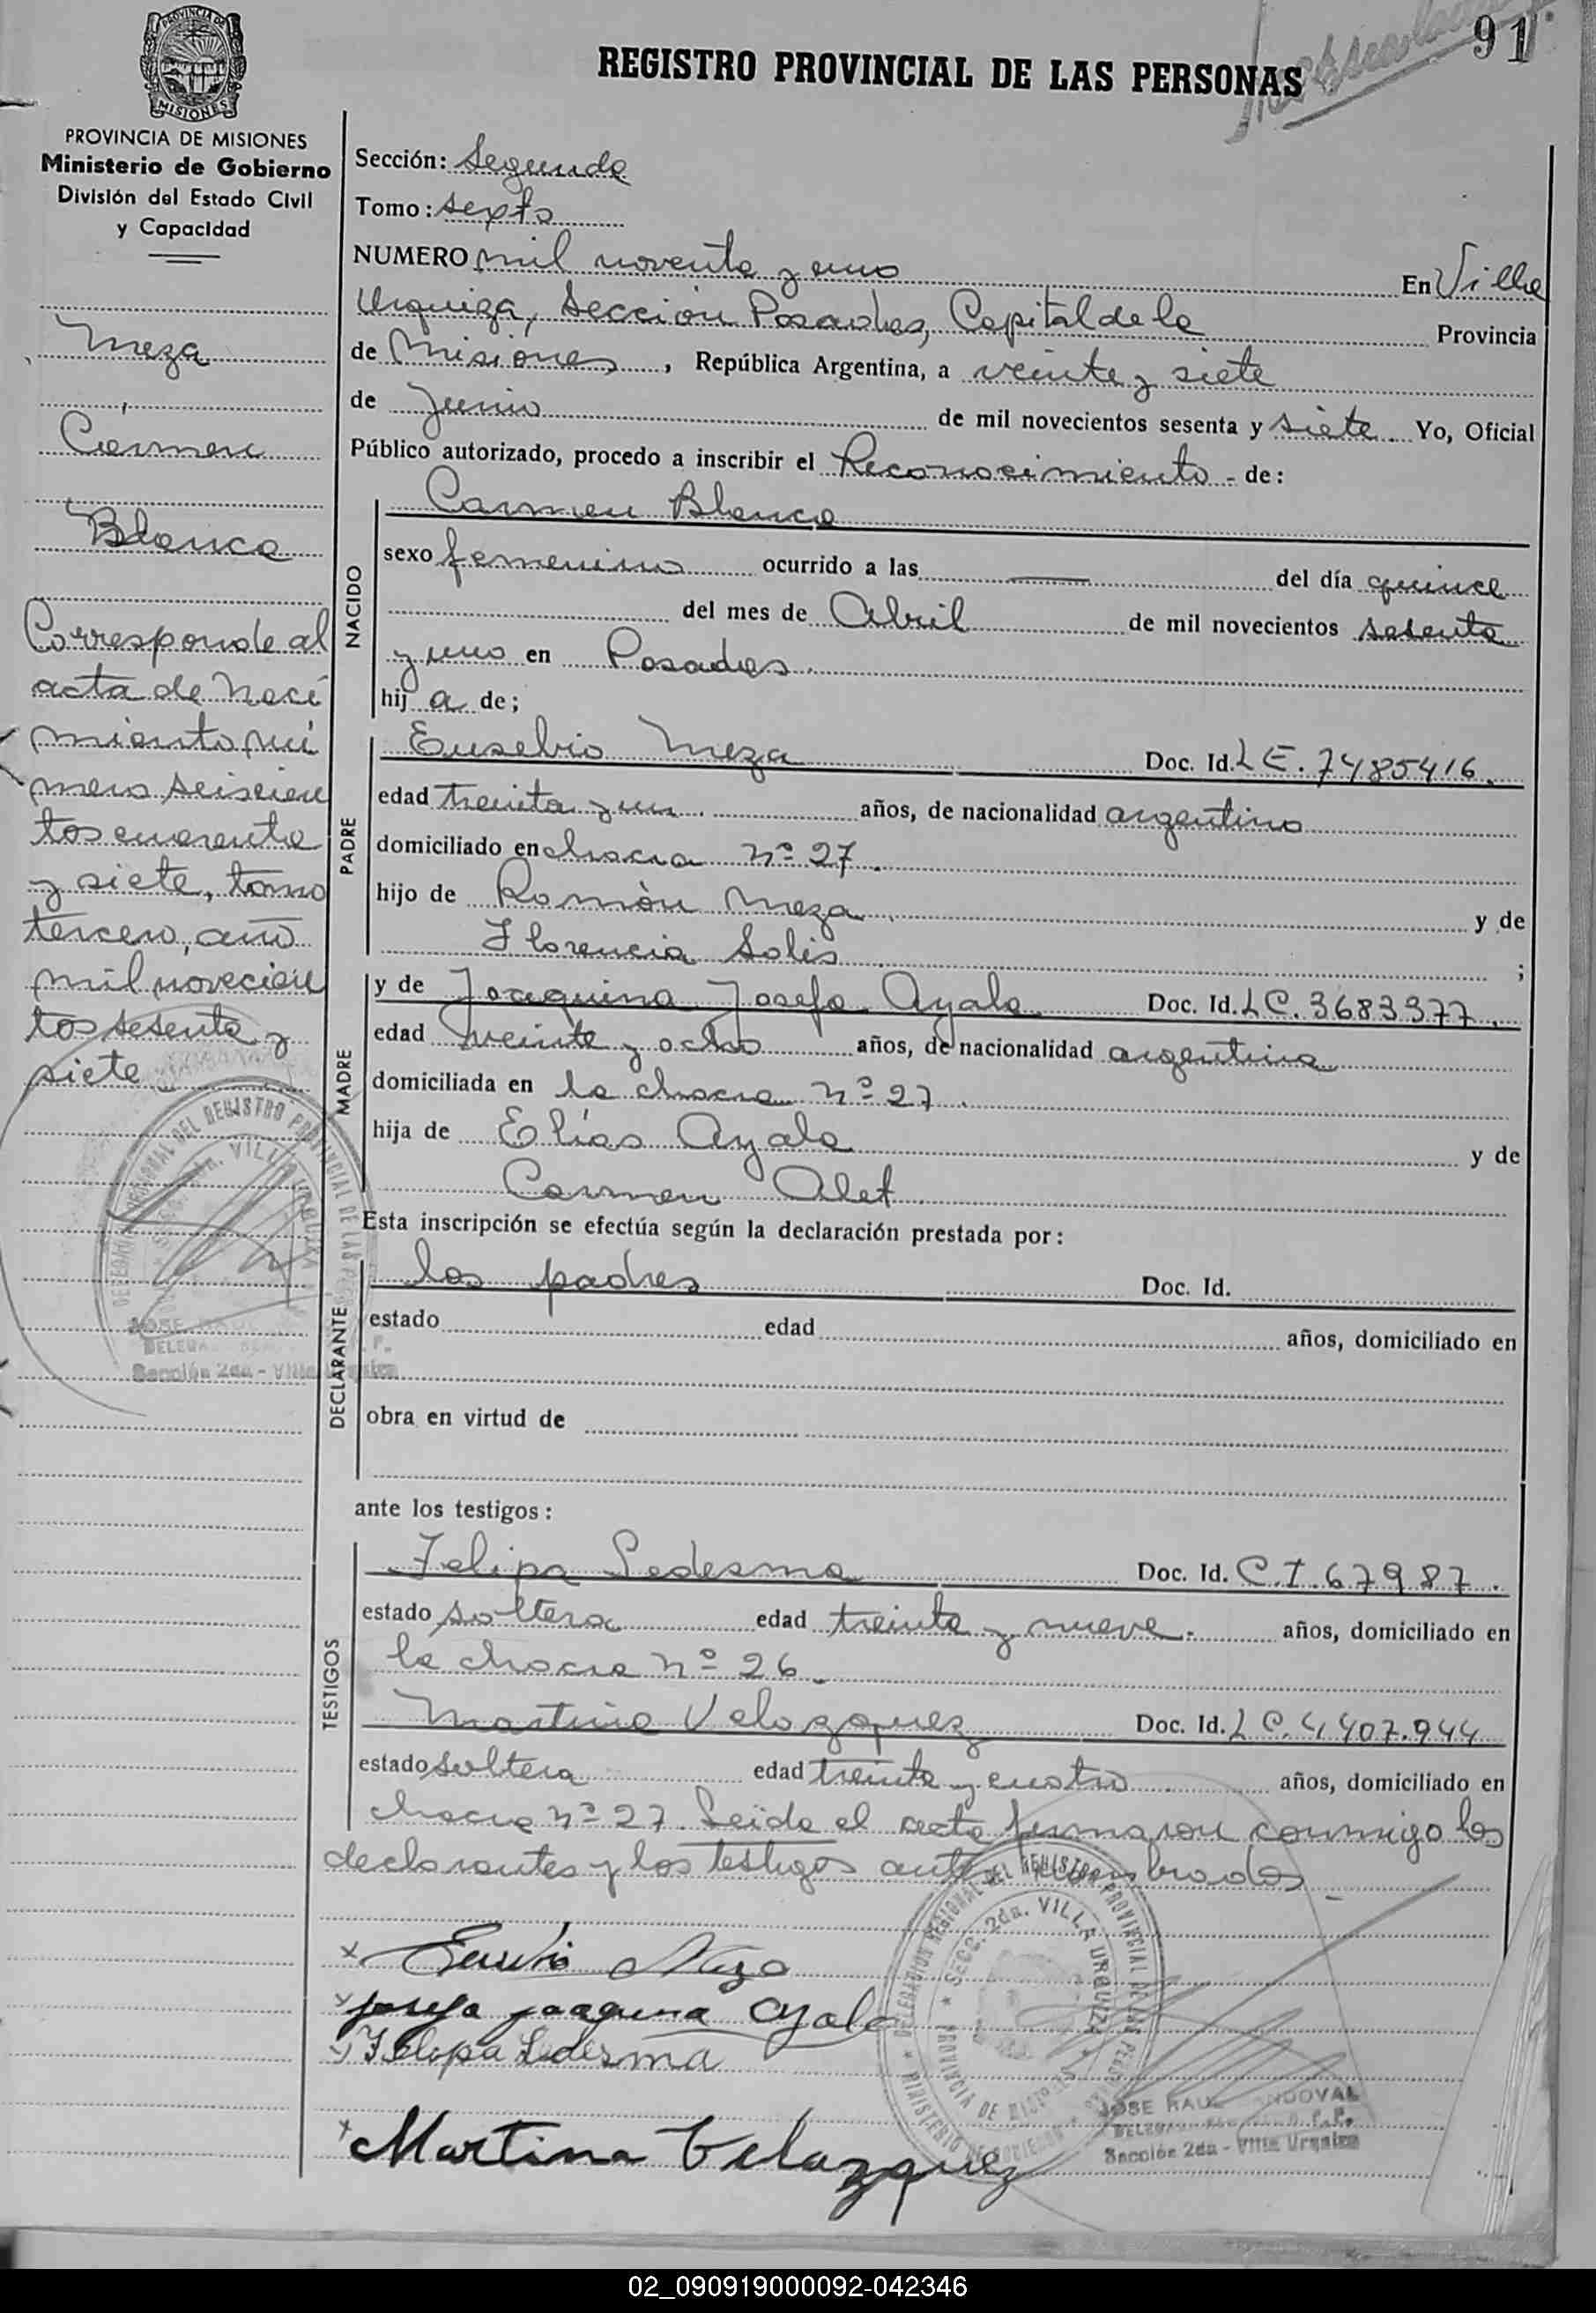 91
REGISTRO PROVINCIAL DE LAS PERSONAS
PROVINCIA DE MISIONES
MISIONES
PROVINCIA DE MISIONES
Ministerio de Gobierno
División del Estado Civil
y Capacidad
Meza
Carmen
Blanca
Corresponde al
acta de naci
miento nú
mero seiscien
tos cuarenta
y siete, tomo
tercero, año
mil novecien
tos sesenta y
siete
Sección: Segunda
Tomo: sexto
NUMERO mil noventa y uno En Villa
Urquiza, Sección Posadas, Capital de la Provincia
de Misiones, República Argentina, a veinte y siete
de Junio de mil novecientos sesenta y siete. Yo, Oficial
Público autorizado, procedo a inscribir el Reconocimiento - de:
NACIDO
Carmen Blanca
sexo femenino ocurrido a las — del día quince
del mes de Abril de mil novecientos sesenta
y uno en Posadas.
hij a de;
PADRE
Eusebio Meza Doc. Id. L E. 7485416.
edad treinta y un años, de nacionalidad argentino
domiciliado en chacra nº 27.
hijo de Ramòn Meza y de
Florencia Solis ;
MADRE
y de Joaquina Josefa Ayala Doc. Id. L C. 3683977.
edad veinte y ocho años, de nacionalidad argentina
domiciliada en la chacra nº 27.
hija de Elías Ayala y de
Carmen Alet
Esta inscripción se efectúa según la declaración prestada por:
DECLARANTE
los padres Doc. Id.
estado edad años, domiciliado en
obra en virtud de
ante los testigos:
TESTIGOS
Felipa Ledesma Doc. Id. C.I. 67987.
estado soltera edad treinta y nueve. años, domiciliado en
la chacra nº 26.
Martina Velozquez Doc. Id. L C. 4,407.944
estado soltera edad treinta y cuatro años, domiciliado en
chacra nº 27. Leída el acta firmaron conmigo los
declarantes y los testigos ante nombrados
x Eusebio Meza
x Josefa Joaquina Ayala
x Felipa Ledesma
x Martina Velazquez
DELEGACION REGIONAL DEL REGISTRO PROVINCIAL DE LAS
SECC. 2da. VILLA URQUIZA
PROVINCIA DE MISIONES
JOSE RAUL SANDOVAL
Sección 2da - Villa Urquiza
02_090919000092-042346